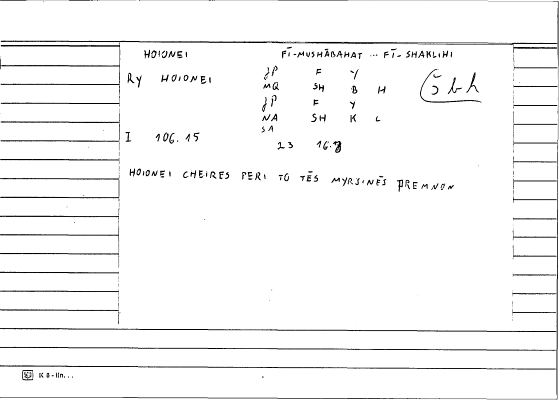 HOIONEI FĪ-MUSHĀBAHAT ... FĪ-SHAKLIHI
RY HOIONEI JP F Y
MQ SH B H šbh
JP F Y
NA SH K L
SA
I 106.15 23 16.
HOIONEI CHEIRES PERI TO TĒS MYRSINĒS PREMNON